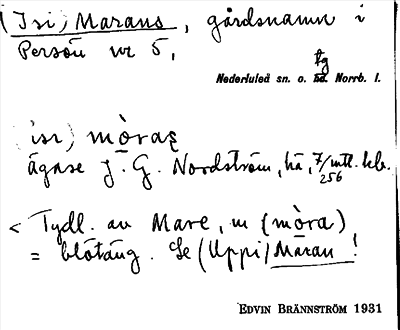 (Isi) Marans, gårdsnamn i
Persön nr 5,
tg
Nederluleå sn. o. sd. Norrb. l.
(isi) mòraṣ
ägare J. G. Nordström, hä, 7/mtl. kb.
256
< Tydl. av Mare, m (mòra)
= blötäng. Se (Uppi) Maran!
EDVIN BRÄNNSTRÖM 1931